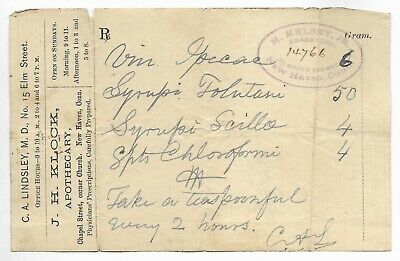 C. A. LINDSLEY, M. D., No. 15 Elm Street.
OFFICE HOURS—9 to 10 A. M., 2 to 4 and 6 to 7 P. M.
J. H. KLOCK,
APOTHECARY,
Chapel Street, corner Church. New Haven, Conn.
Physicians' Prescriptions, Carefully Prepared.
OPEN ON SUNDAYS.
Morning, 9 to 11.
Afternoon, 1 to 3 and
5 to 8.
℞ Gram.
H. KELSEY, J
14766
NEW HAVEN, CONN
Vin Ipecac 6
Syrupi Tolutani 50
Syrupi Scillo 4
Spts Chloroformi 4
M
Take a teaspoonful
every 2 hours.
C A L